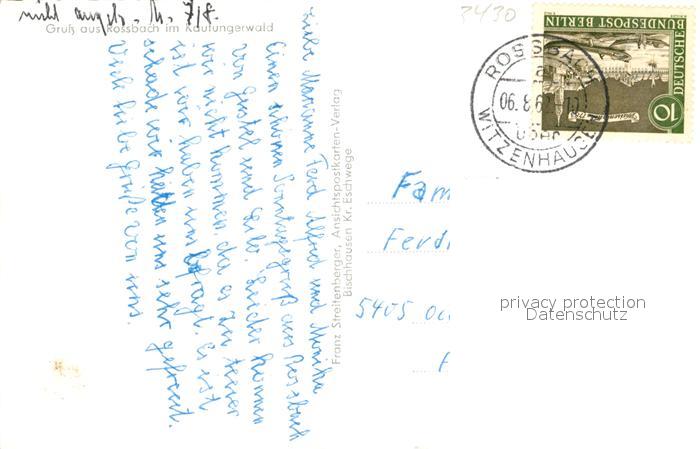 nicht angek. M. 7/8.
Gruß aus Rossbach im Kaufungerwald
3430
DEUTSCHE
BUNDESPOST BERLIN
10
ROSSBACH
06.8.62-10
WITZENHAUSEN
Liebe Marianne Ferd Alfred und Monika
Einen schönen Sonntagsgruß aus Rossbach
von Gustel und Lilo. Leider können
wir nicht kommen, da es zu teuer
ist wir haben uns befragt. Es ist
schade wir hätten uns sehr gefreut.
Viele liebe Grüße von uns.
Franz Streitenberger, Ansichtspostkarten-Verlag
Bischhausen Kr. Eschwege
Fam
Ferdi
5405
privacy protection
Datenschutz